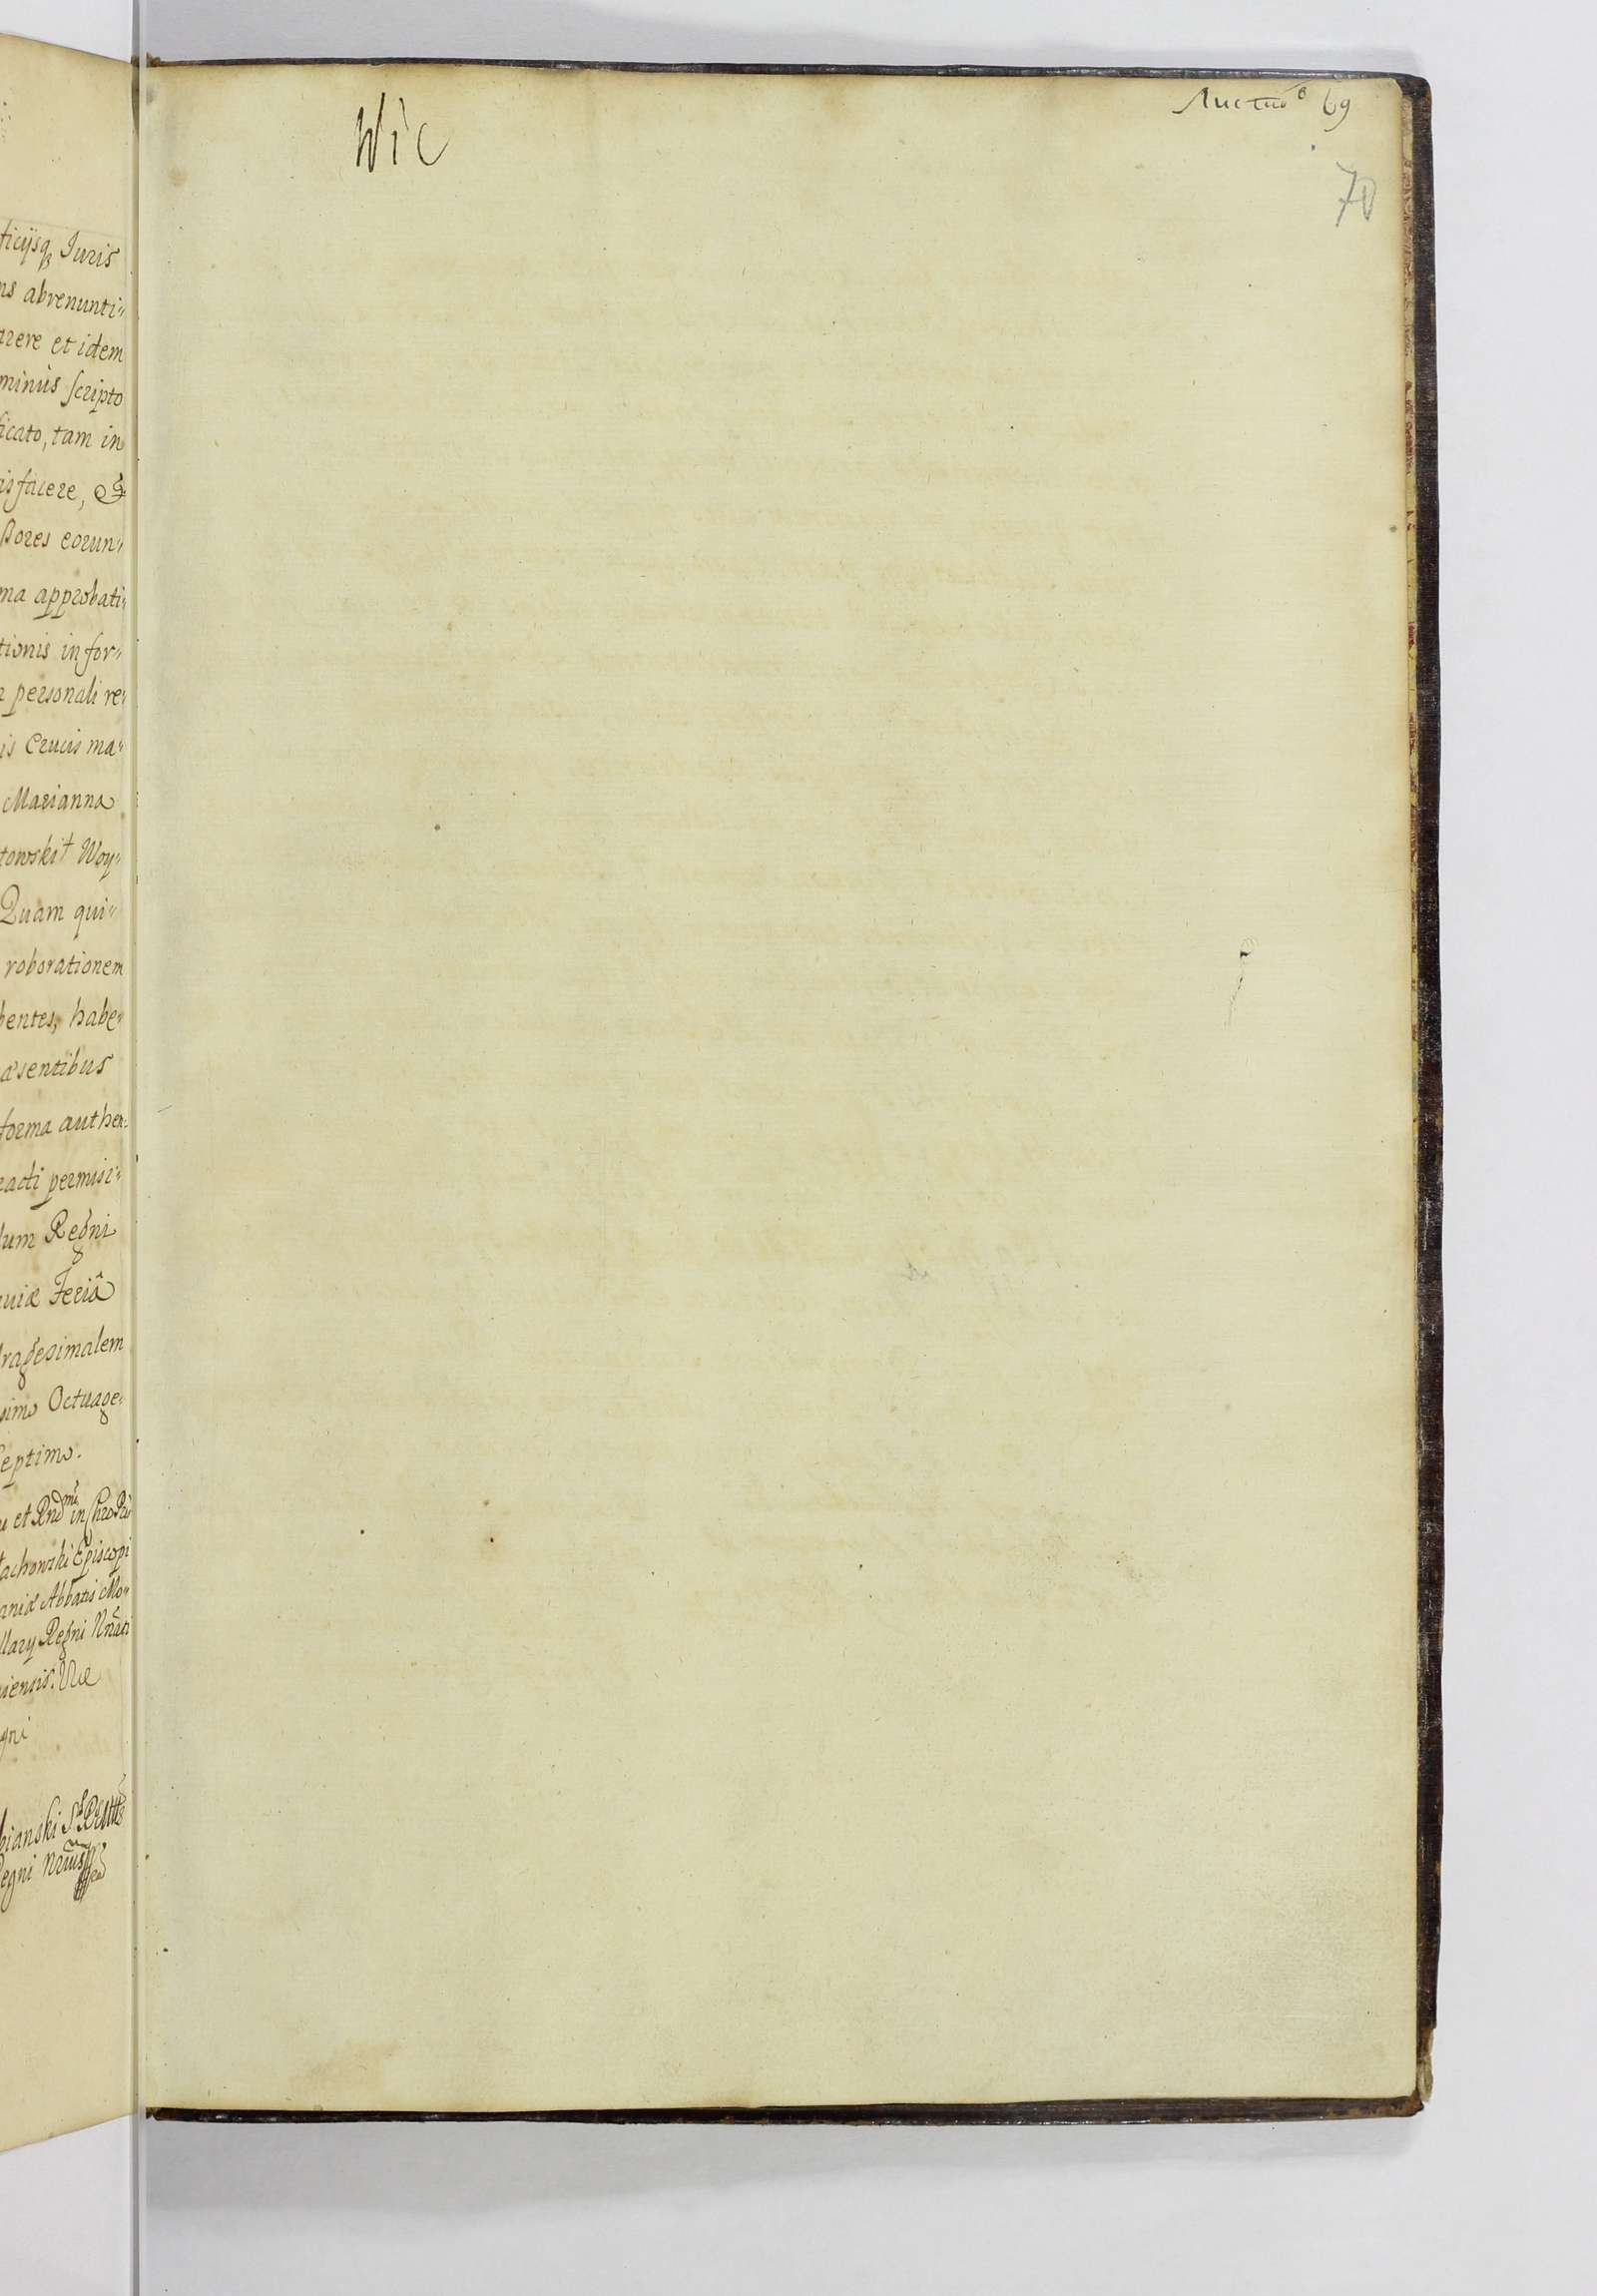 ticijsq, Juris
ns abrenunti„
arere et idem
minùs scripto
ficato, tam in
is facere, &
ssores eorun„
ma approbati„
tionis in for„
personali re„
is Crucis ma„
Marianna
towski † Woy„
Quam qui„
roborationem
bentes, habe„
æsentibus
forma authen„
racti permisi„
lum Regni
uiæ Feriâ
ragesimalem
simo Octuage„
Septimo.
et Rndmi in Chro
tachowski Episcopi
aniæ Abbatis Mo„
llarij Regni
niensis.
gni
bianski
egni
Wic
Листъ 69
70